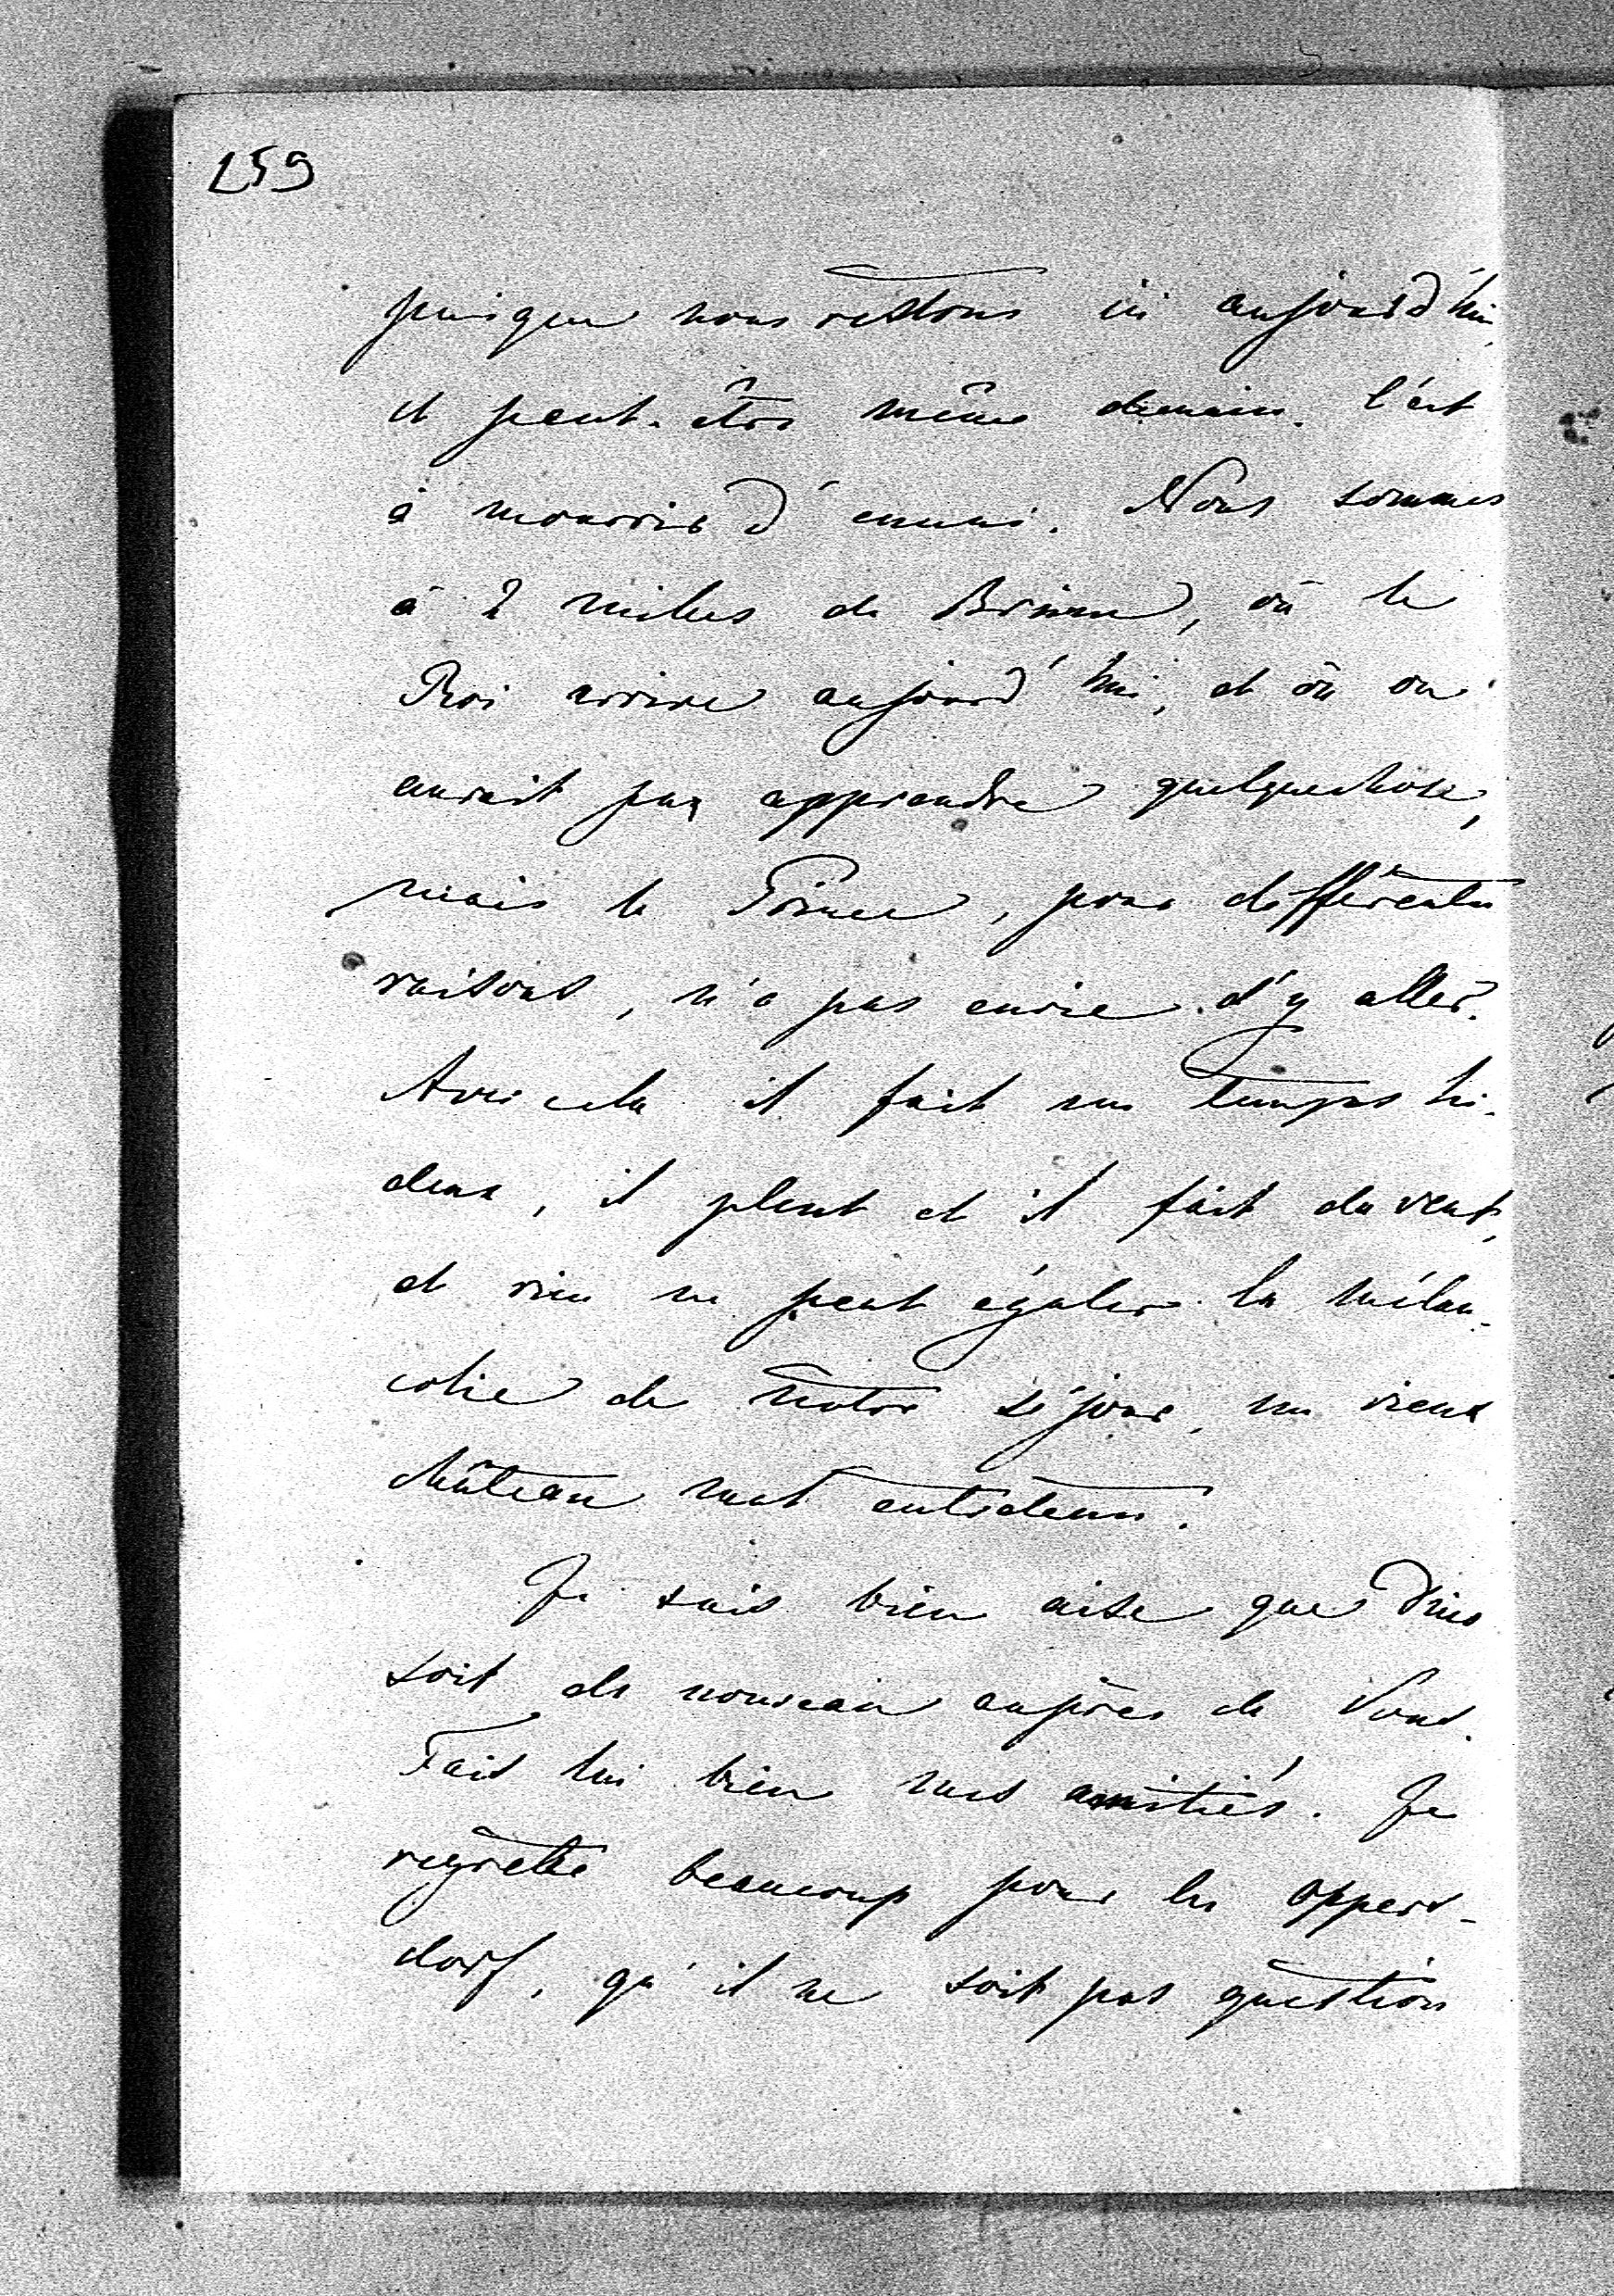 259
puisque nous restons ici aujourd'hui,
et peut-être même demain. C'est
à mourrir d'ennui. Nous sommes
à 2 milles de Brünn, où le
Roi arrive aujourd'hui, et où on
aurait pu apprendre quelquechose,
mais le Prince, pour différentes
raisons, n'a pas envie d'y aller.
Avec cela il fait un temps hi-
deux, il pleut et il fait du vent,
et rien ne peut égaler la mélan-
colie de notre séjour, un vieux
château mal entretenu.
Je suis bien aise que
soit de nouveau auprès de Vous.
Fais lui bien mes amitiés. Je
regrette beaucoup pour les Oppers-
dorf, qu'il ne soit pas question